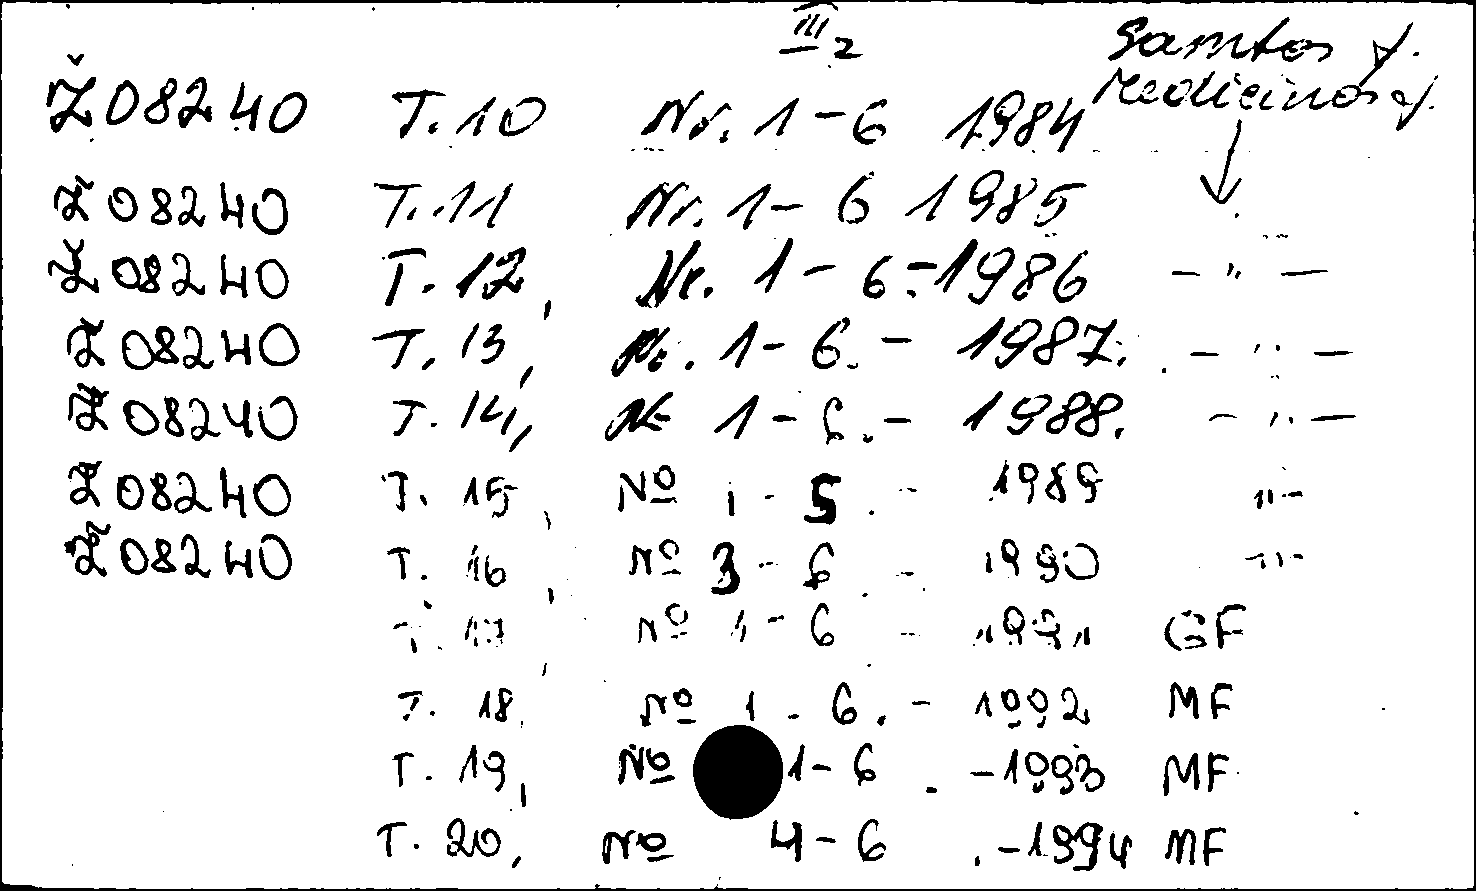 III 2
Gamtos f.
Medicinos f.
Ž08240 T.10 Nr. 1-6 1984
Ž08240 T.11 Nr. 1-6 1985
Ž08240 T.12, Nr. 1-6.-1986 -"-
Ž08240 T.13, Nr. 1-6.- 1987. -"-
Ž08240 T.14, Nr 1-6.- 1988. -"-
Ž08240 T. 15, № 1-5.- 1989 "-
Ž08240 T. 16, № 3-6.- 1990 -"-
T. 17, № 1-6 - 1991 GF
T. 18, № 1-6.- 1992 MF
T. 19, № 1-6.-1993 MF
T. 20, № 4-6.-1994 MF